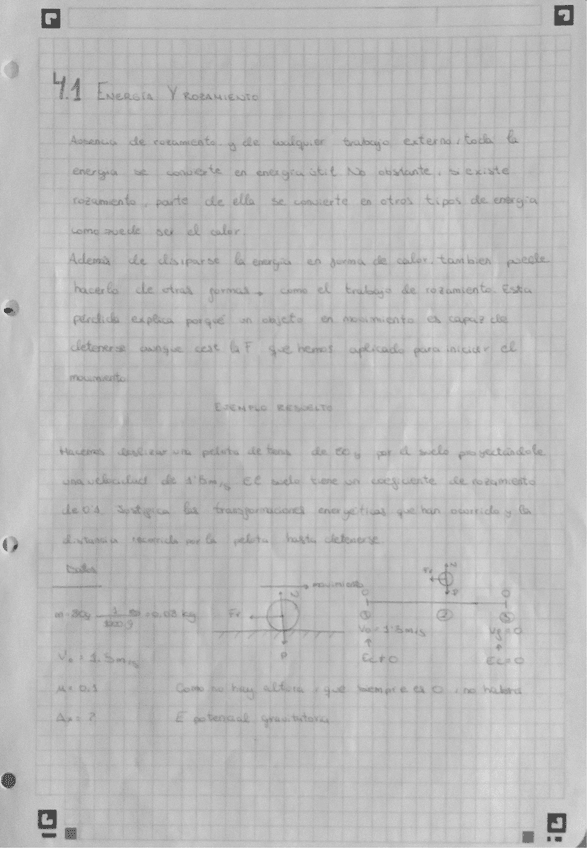 4.1 ENERGÍA Y ROZAMIENTO
Ausencia de rozamiento y de cualquier trabajo externo, toda la
energía se convierte en energía útil. No obstante, si existe
rozamiento, parte de ella se convierte en otros tipos de energía
como puede ser el calor.
Además de disiparse la energía en forma de calor, tambien puede
hacerlo de otras formas, como el trabajo de rozamiento. Esta
pérdida explica porqué un objeto en movimiento es capaz de
detenerse aunque cese la F que hemos aplicado para iniciar el
movimiento.
EJEMPLO RESUELTO
Hacemos deslizar una pelota de tenis de 80g por el suelo proyectándole
una velocidad de 1'5m/s. El suelo tiene un coeficiente de rozamiento
de 0'1. Justifica las transformaciones energéticas que han ocurrido y la
distancia recorrida por la pelota hasta detenerse.
Datos
movimiento
N
Fr
P
m = 80g
1000g
= 0.08 kg
Fr N P
0 0
① ② ③
V₀ = 1.5m/s Vf = 0
Ec ≠ 0 Ec = 0
V₀ = 1.5m/s
μ = 0.1
Δx = ?
Como no hay altura, que siempre es 0, no habrá
E potencial gravitatoria